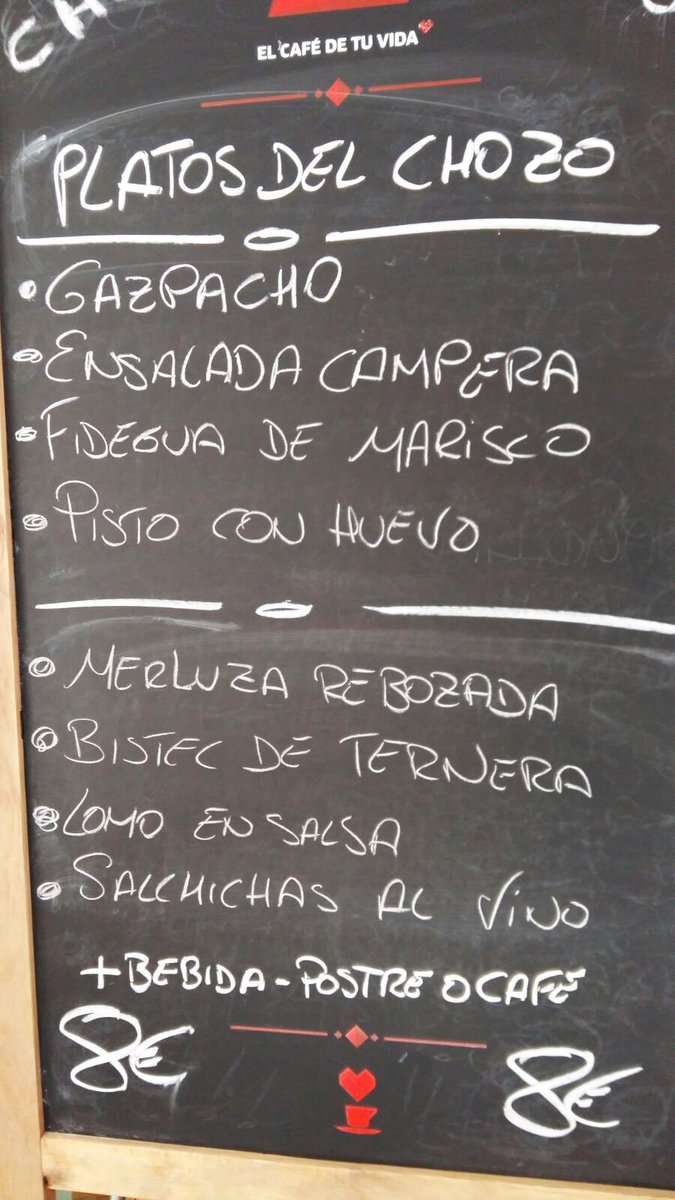 EL CAFÉ DE TU VIDA
PLATOS DEL CHOZO
GAZPACHO
ENSALADA CAMPERA
FIDEGUA DE MARISCO
PISTO CON HUEVO
MERLUZA REBOZADA
BISTEC DE TERNERA
LOMO EN SALSA
SALCHICHAS AL VINO
+BEBIDA-POSTRE O CAFÉ
8€ 8€